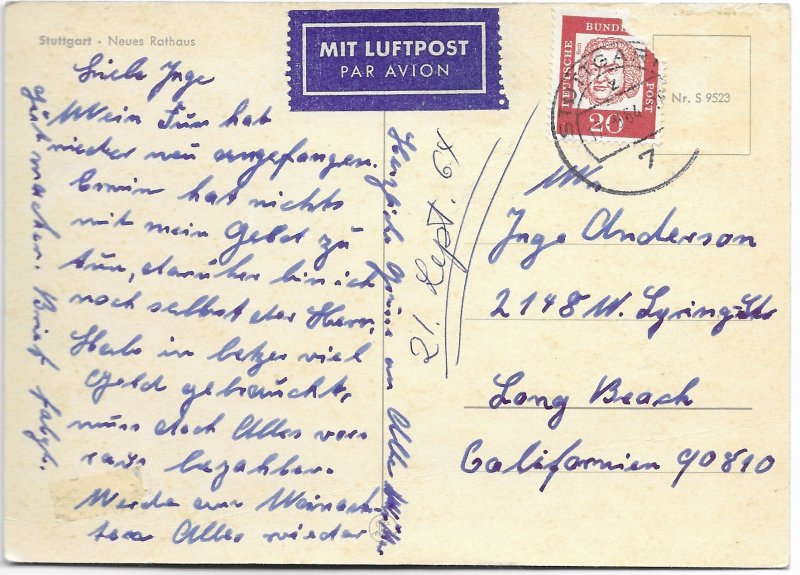 Stuttgart · Neues Rathaus
MIT LUFTPOST
PAR AVION
DEUTSCHE
BUNDES
POST
20
Nr. S 9523
1
Liebe Inge
Mein hat
wieder neu angefangen.
Erwin hat nichts
mit mein Geld zu
tun, darüber bin ich
noch selbst der Herr,
Habe in letzer viel
Geld gebraucht,
muss doch Alles vor
raus bezahlen.
Werde an Weinach
ten Alles wieder
gut machen. Brief folgt.
Herzliche Grüße an Alle
21. Sept. 64
Inge Anderson
2148 W. Lyring-Str
Long Beach
Californien 90810